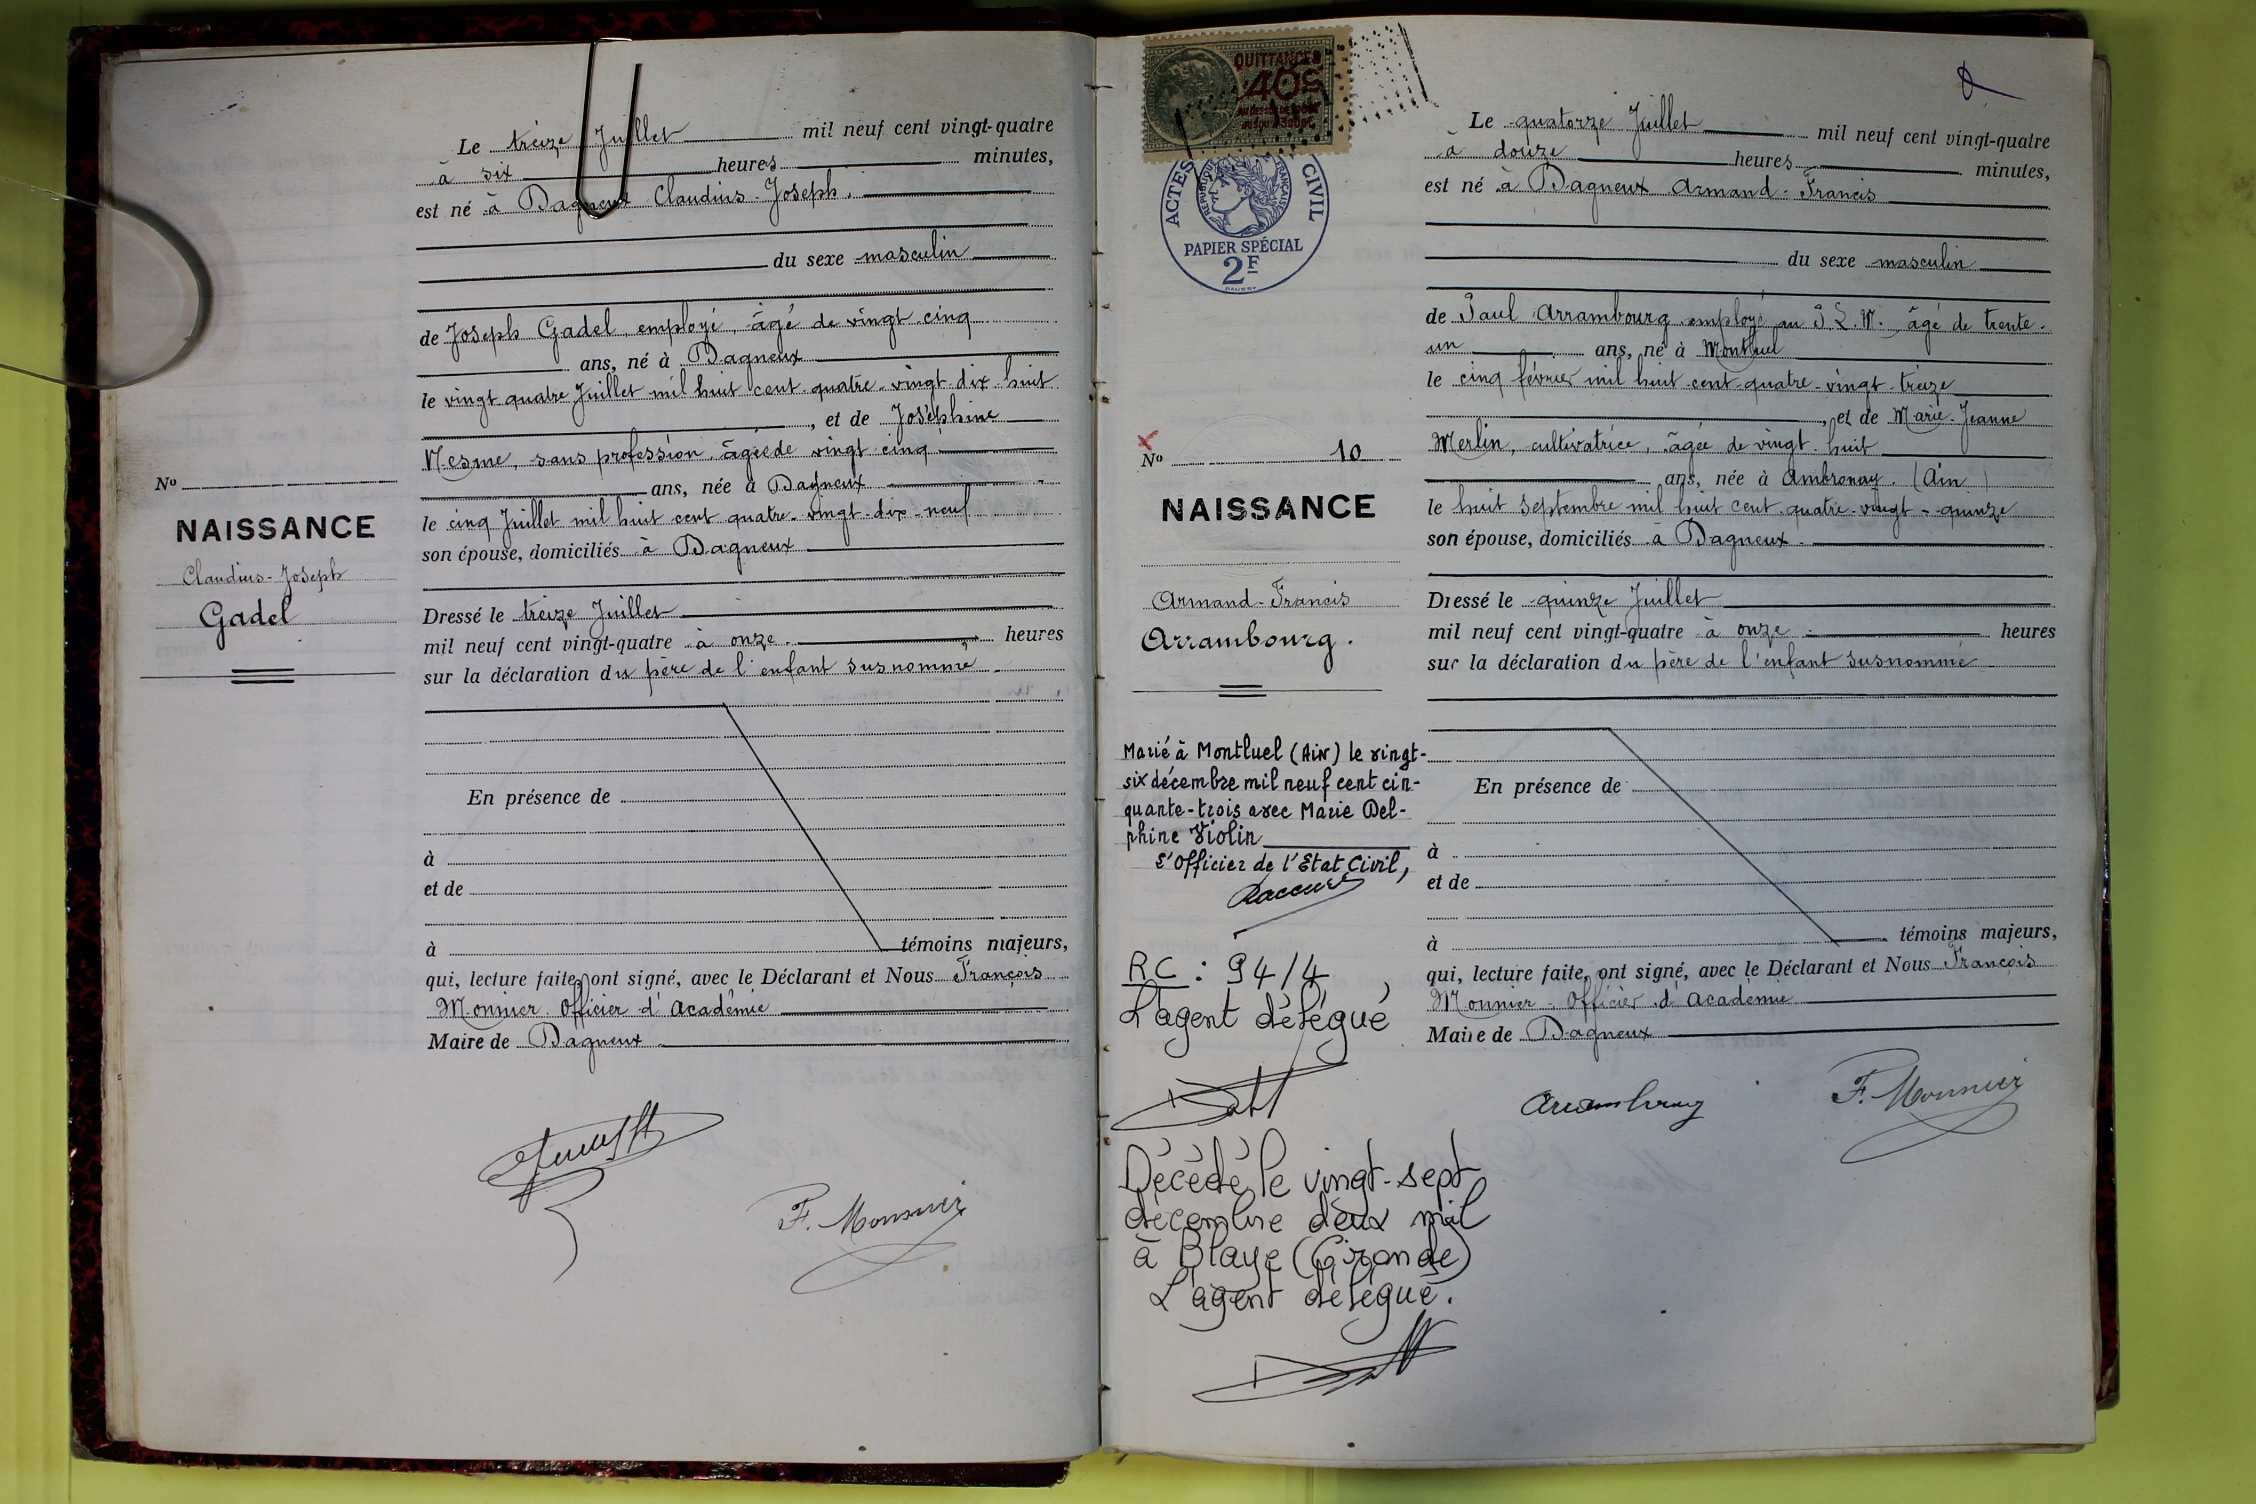 Le treize Juillet mil neuf cent vingt-quatre
à six heures minutes,
est né à Dagneux Claudius-Joseph.
du sexe masculin
de Joseph Gadel, employé, âgé de vingt cinq
ans, né à Dagneux
le vingt quatre Juillet mil huit cent quatre-vingt-dix-huit
, et de Joséphine
Mesme, sans profession, âgée de vingt cinq
ans, née à Dagneux
le cinq Juillet mil huit cent quatre-vingt-dix-neuf
son épouse, domiciliés à Dagneux
Nº
NAISSANCE
Claudius-Joseph
Gadel
Dressé le treize Juillet
mil neuf cent vingt-quatre à onze heures
sur la déclaration du père de l'enfant susnommé
En présence de
à
et de
à témoins majeurs,
qui, lecture faite, ont signé, avec le Déclarant et Nous François
Monnier Officier d'Académie
Maire de Dagneux
F. Monnier
QUITTANCES
40c
ACTES CIVIL
REPUBLIQUE FRANÇAISE
PAPIER SPÉCIAL
2F
Le quatorze Juillet mil neuf cent vingt-quatre
à douze heures minutes,
est né à Dagneux Armand-Francis
du sexe masculin
de Paul Arrambourg employé au P.L.M. âgé de trente-
un ans, né à Montluel
le cinq février mil huit cent quatre-vingt-treize
, et de Marie-Jeanne
Merlin, cultivatrice, âgée de vingt-huit
ans, née à Ambronay. (Ain)
le huit septembre mil huit cent quatre-vingt-quinze
son épouse, domiciliés à Dagneux.
Nº 10
NAISSANCE
Armand-Francis
Arrambourg.
Dressé le quinze Juillet
mil neuf cent vingt-quatre à onze heures
sur la déclaration du père de l'enfant susnommé
En présence de
à
et de
à témoins majeurs,
qui, lecture faite, ont signé, avec le Déclarant et Nous François
Monnier, Officier d'Académie
Maire de Dagneux
Arrambourg
F. Monnier
Marié à Montluel (Ain) le vingt-
six décembre mil neuf cent cin-
quante-trois avec Marie Del-
phine Violin
L'Officier de l'Etat Civil,
RC : 94/4,
L'agent délégué
Décédé le vingt-sept
décembre deux mil
à Blaye (Gironde)
L'agent délégué.